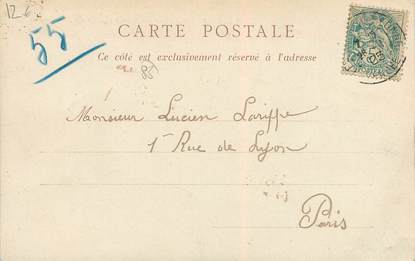 126
55
CARTE POSTALE
Ce côté est exclusivement réservé à l'adresse
88
Monsieur Lucien Larippe
1 Rue de Lyon
Paris